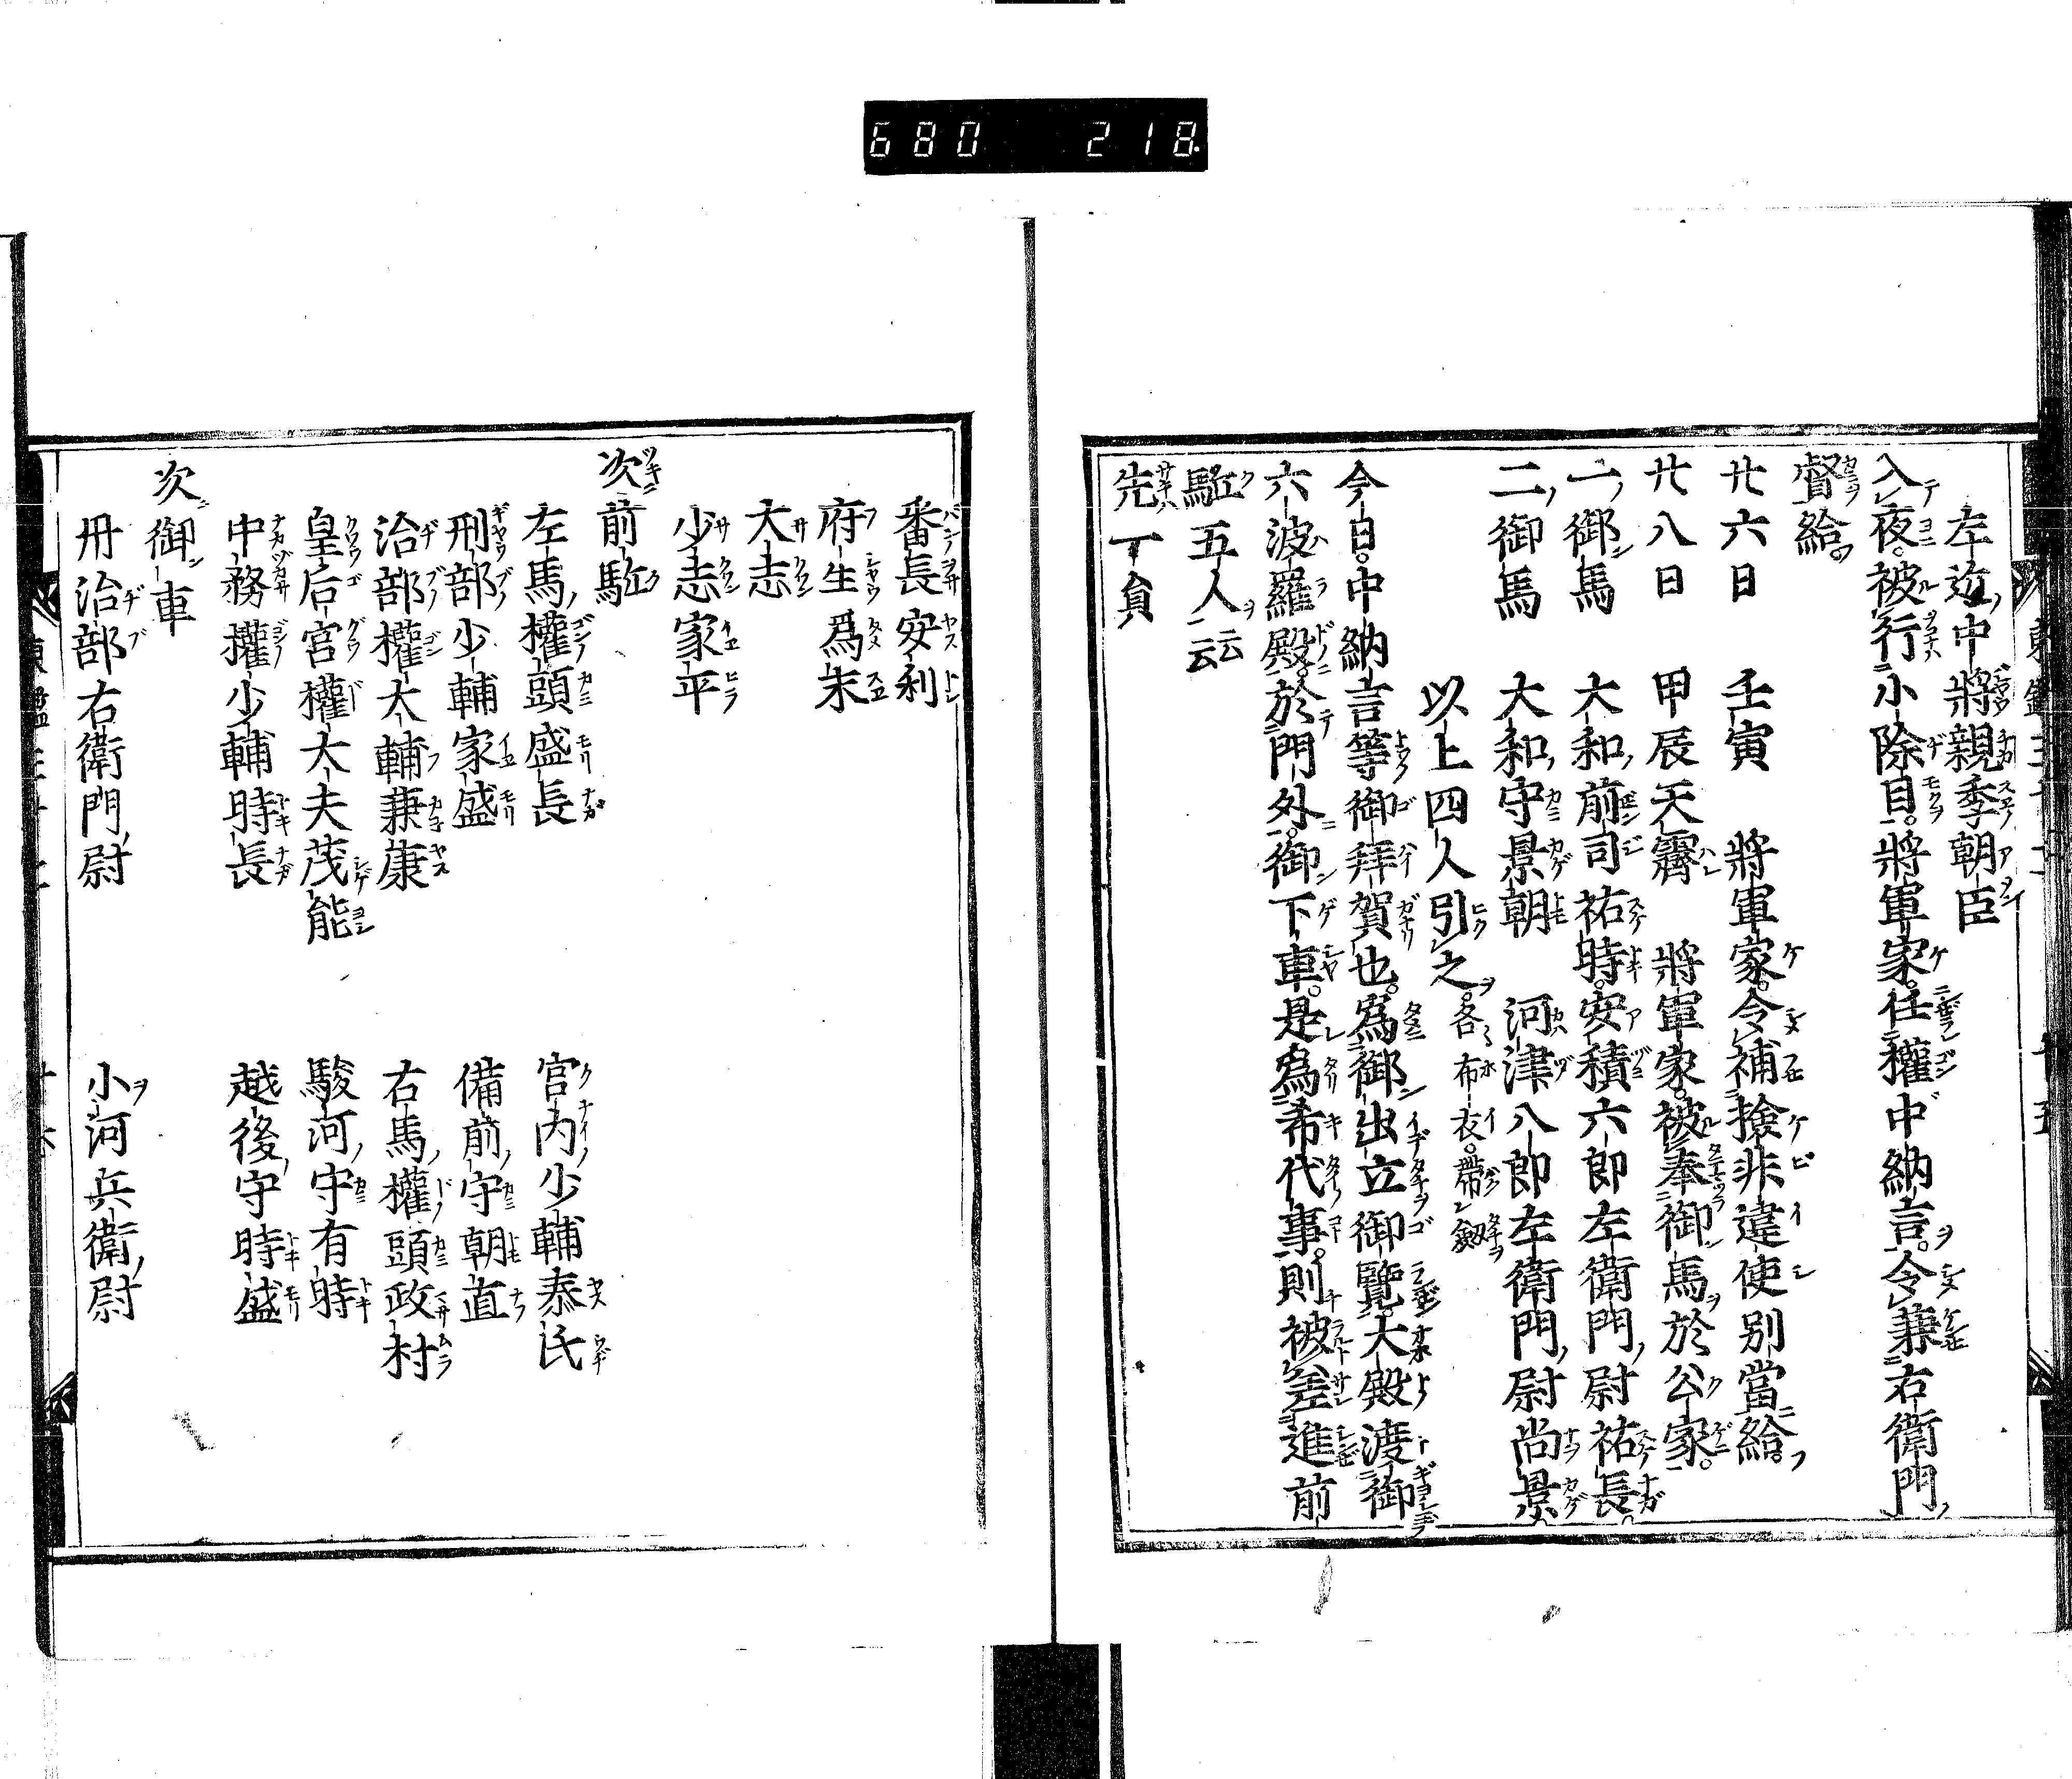 680 218
左近中將親季朝臣
入夜。被行小除目。將軍家。任權中納言。令兼右衛門
督給。
廿六日 壬寅 將軍家。令補撿非違使別當給。
廿八日 甲辰天霽 將軍家。被奉御馬於公家。
一御馬 大和前司祐時。安積六郎左衛門尉祐長。
二御馬 大和守景朝 河津八郎左衛門尉尚景
以上四人引之。各布衣。帶劔
今日。中納言等御拜賀也。爲御出立御覽。大殿渡御
六波羅殿。於門外。御下車。是爲希代事。則被差進前
駈五人云云
先一員
番長安利
府生爲末
大志
少志家平
次前駈
左馬權頭盛長 宮内少輔泰氏
刑部少輔家盛 備前守朝直
治部權大輔兼康 右馬權頭政村
皇后宮權大夫茂能 駿河守有時
中務權少輔時長 越後守時盛
次御車
丹治部右衛門尉 小河兵衛尉